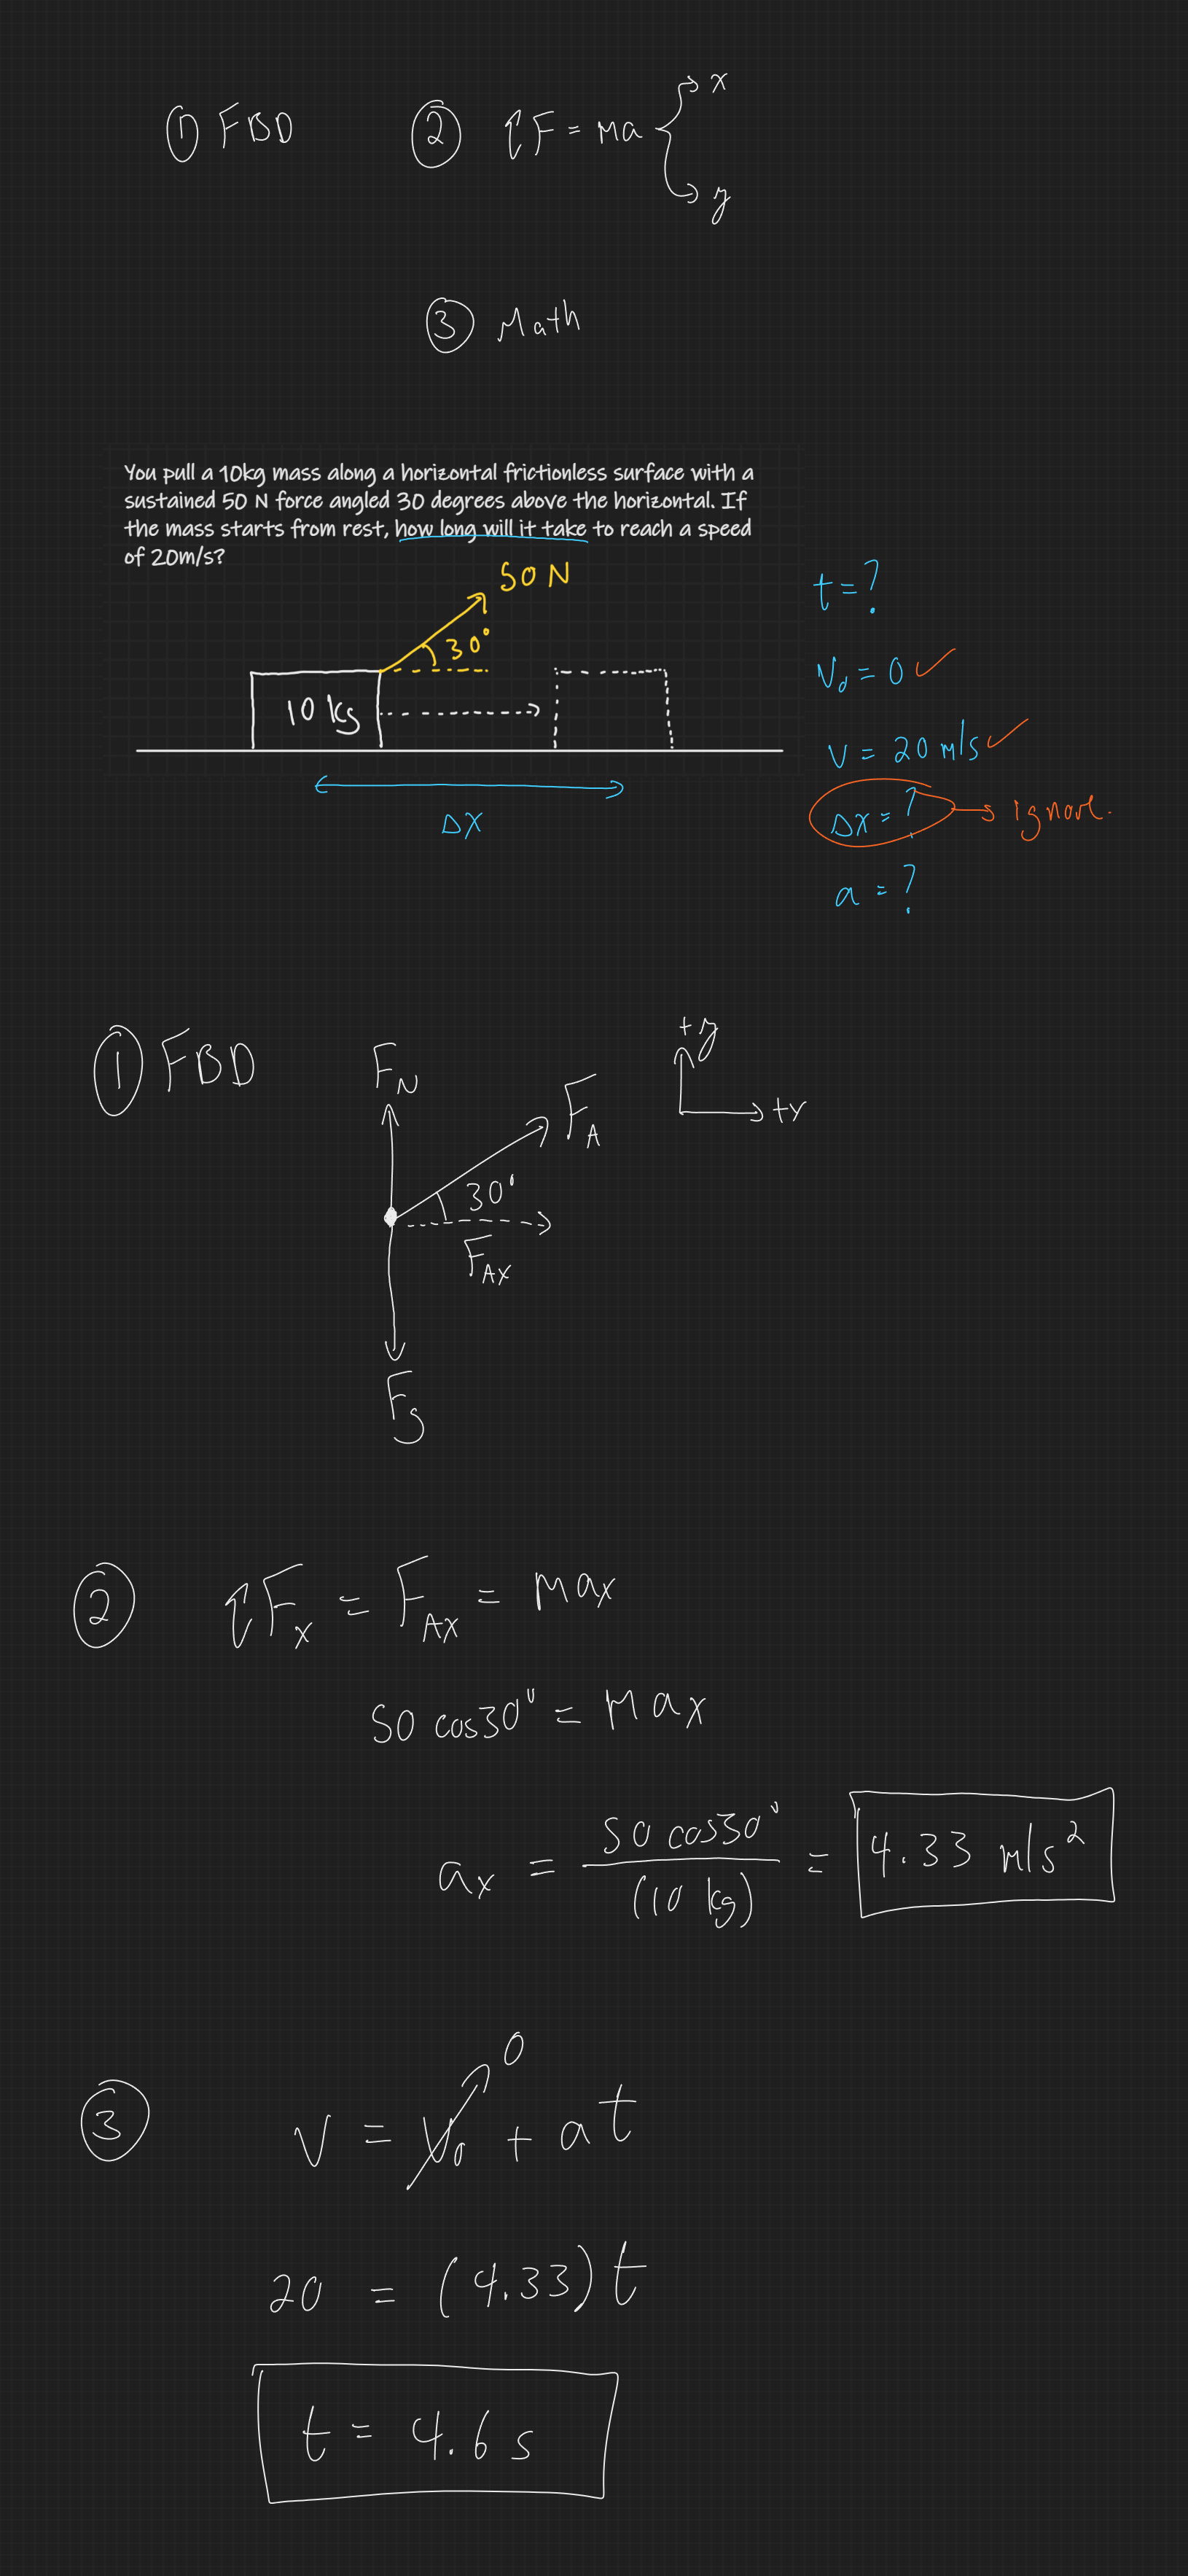 ① FBD ② ΣF = ma → x → y
③ Math
You pull a 10kg mass along a horizontal frictionless surface with a
sustained 50 N force angled 30 degrees above the horizontal. If
the mass starts from rest, how long will it take to reach a speed
of 20m/s?
50 N
30°
10 kg
Δx
t = ?
v₀ = 0 ✓
v = 20 m/s ✓
Δx = ? → ignore.
a = ?
① FBD
F_N
F_A
30°
F_Ax
F_g
+y
+x
② ΣF_x = F_Ax = ma_x
50 cos30° = ma_x
a_x = 50 cos30° / (10 kg) = 4.33 m/s²
③ v = v₀ + at
0
20 = (4.33) t
t = 4.6 s